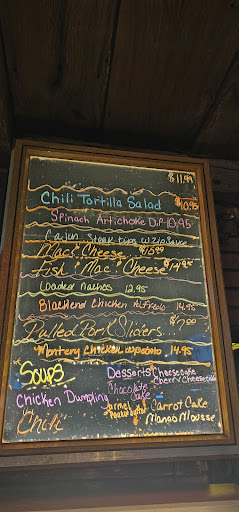 $11.99
Chili Tortilla Salad $10.95
Spinach Artichoke Dip 10.95
Cajun Steak tips w zip sauce
Mac & Cheese $10.99
Fish & "Mac" & Cheese $14.95
Loaded nachos 12.95
Blackend Chicken Alfredo 14.95
Pulled Pork Sliders $7.99
Montery Chicken w/potato 14.95
Soups
Chicken Dumpling
Chili
Desserts Cheesecake
Cherry Cheesecake
Chocolate
Cake
Peanutbutter
Carrot Cake
Mango Mousse